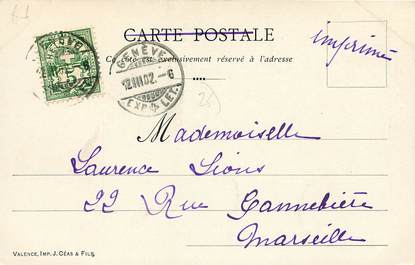 CARTE POSTALE
imprimé
Ce côté est exclusivement réservé à l'adresse
GENÈVE
12 III 02. - 6
EXP. LET.
5
Mademoiselle
Laurence Sions
22 Rue Cannebière
Marseille
VALENCE, IMP. J. CÉAS & FILS